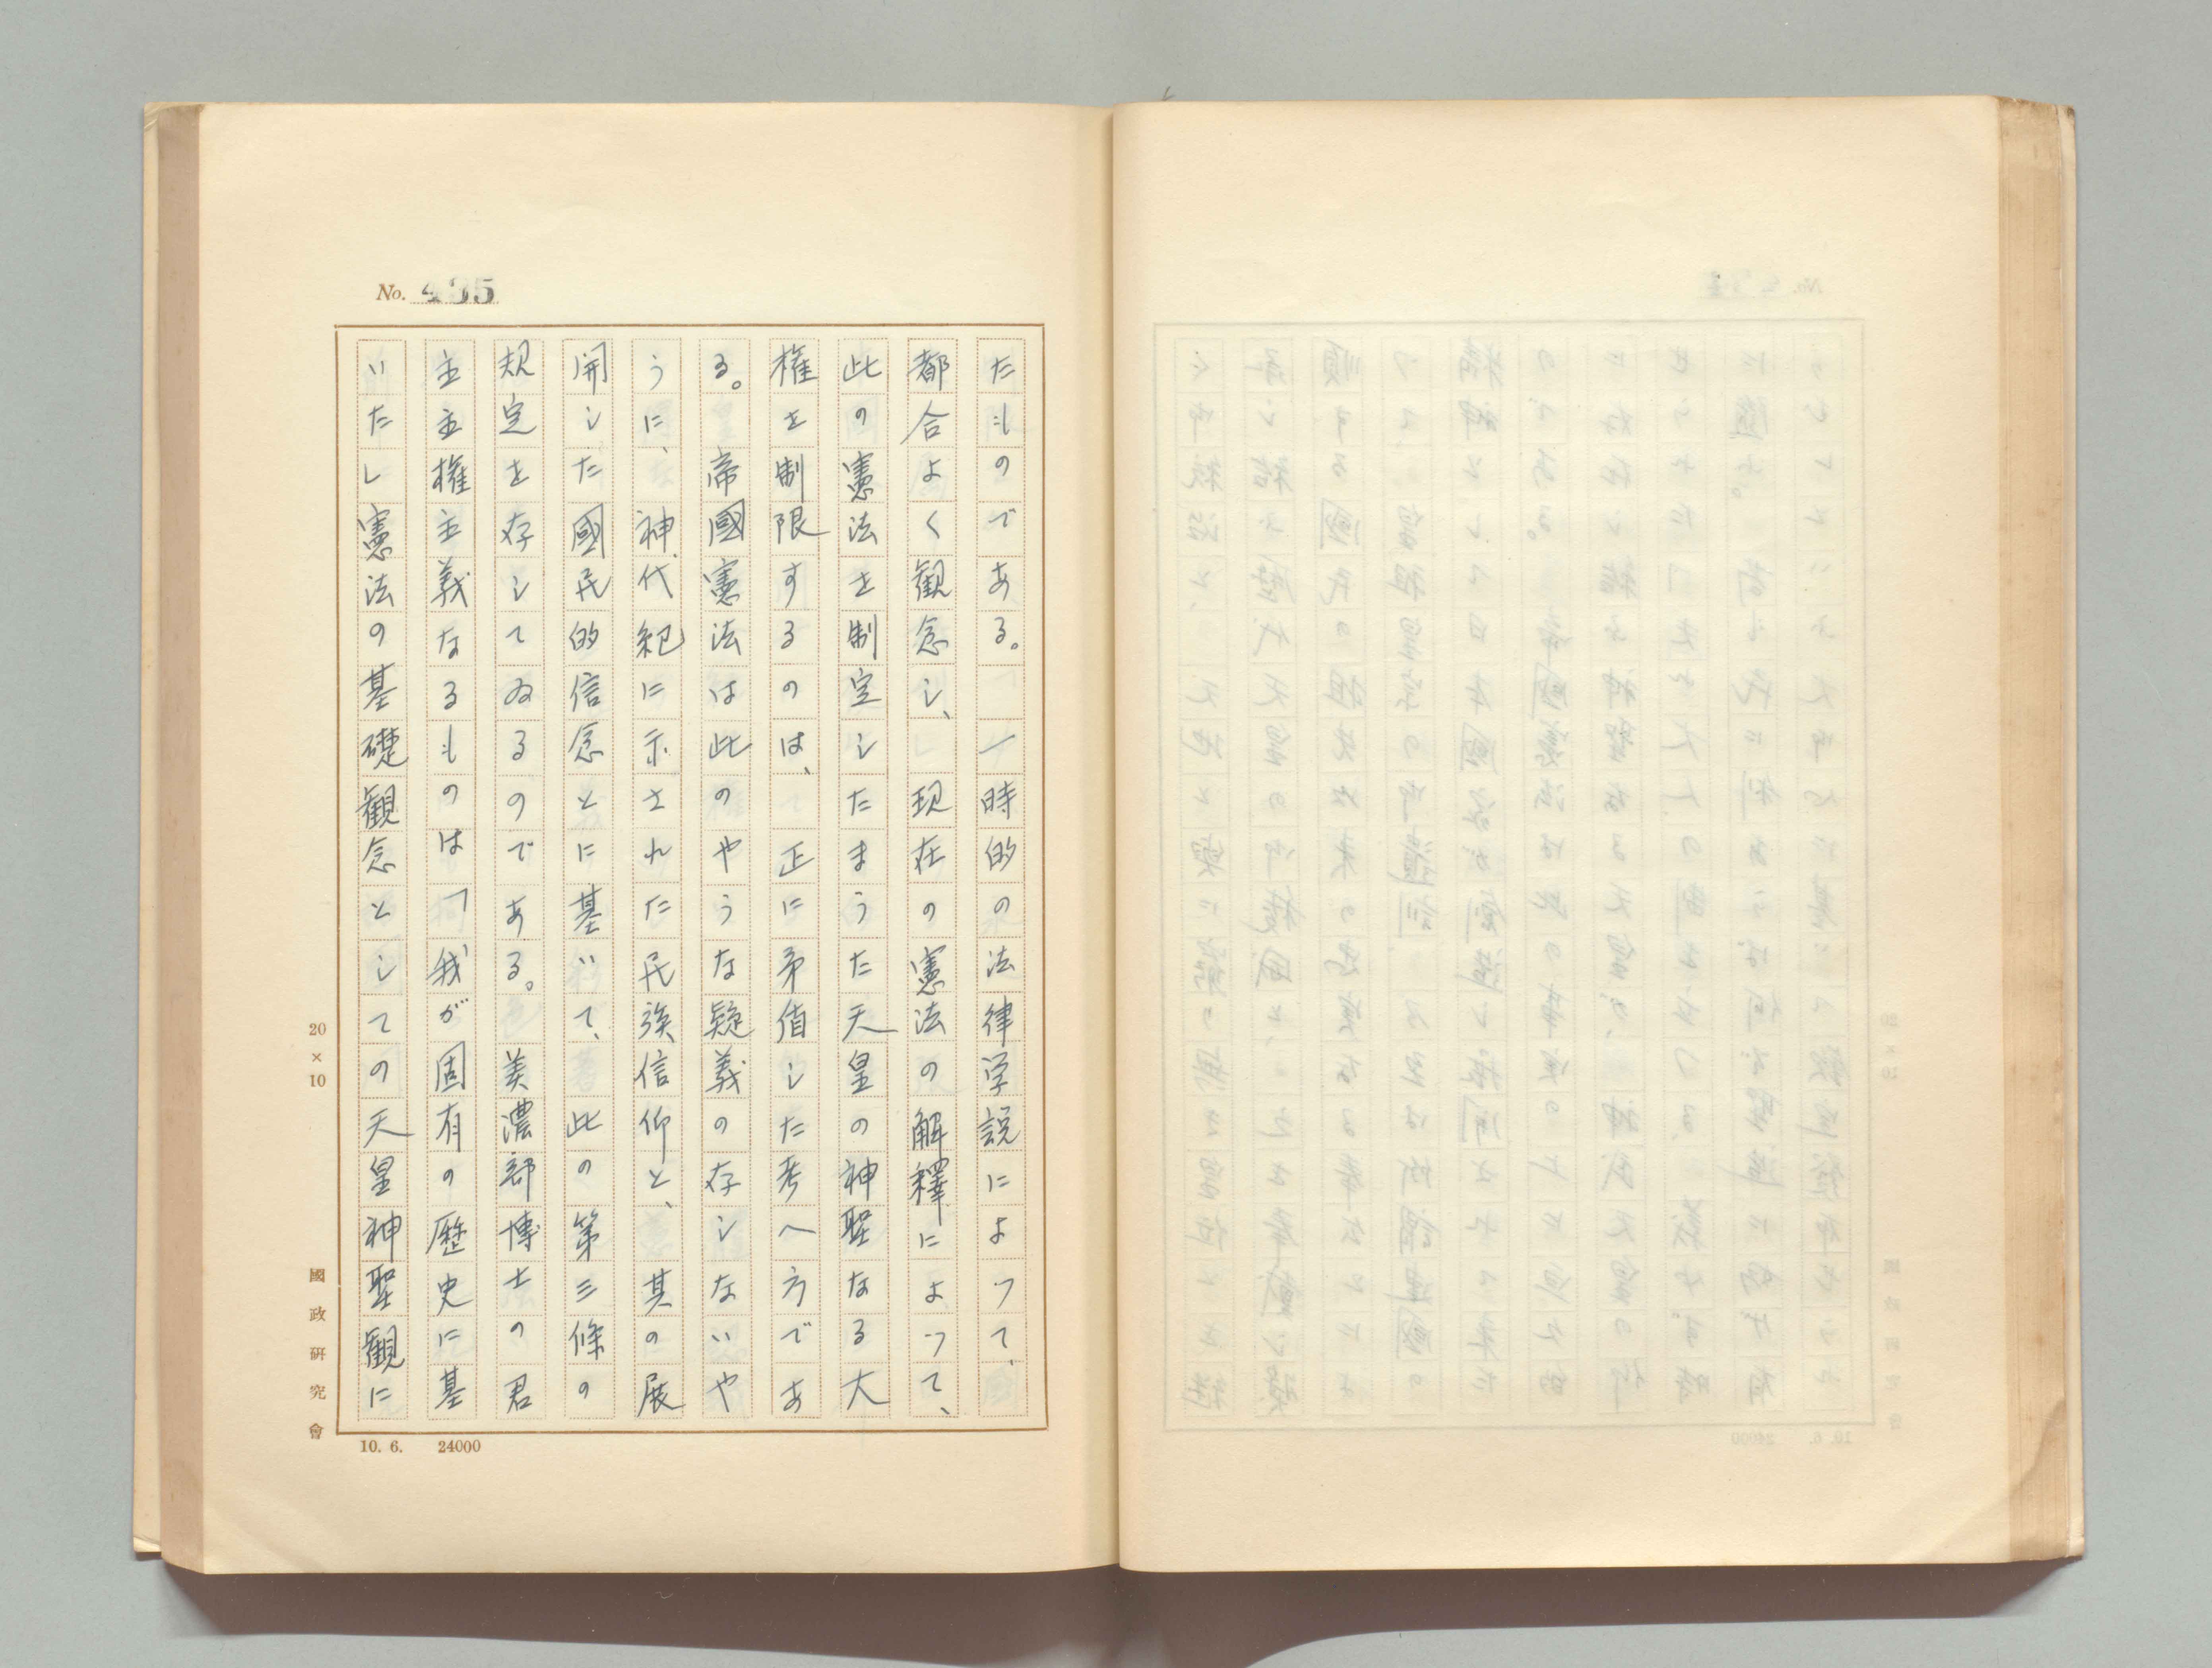 No. 435
たものである。　一時的の法律学説によつて、
都合よく観念し、現在の憲法の解釋によつて、
此の憲法を制定したまうた天皇の神聖なる大
権を制限するのは、正に矛値した考へ方であ
る。　帝國憲法は此のやうな疑義の存しないや
うに、神代紀に示された民族信仰と、其の展
開した國民的信念とに基いて、此の第三條の
規定を存してゐるのである。　美濃部博士の君
主主権主義なるものは「我が固有の歴史に基
いたし憲法の基礎観念としての天皇神聖観に
20×10
國政研究會
10. 6.　24000